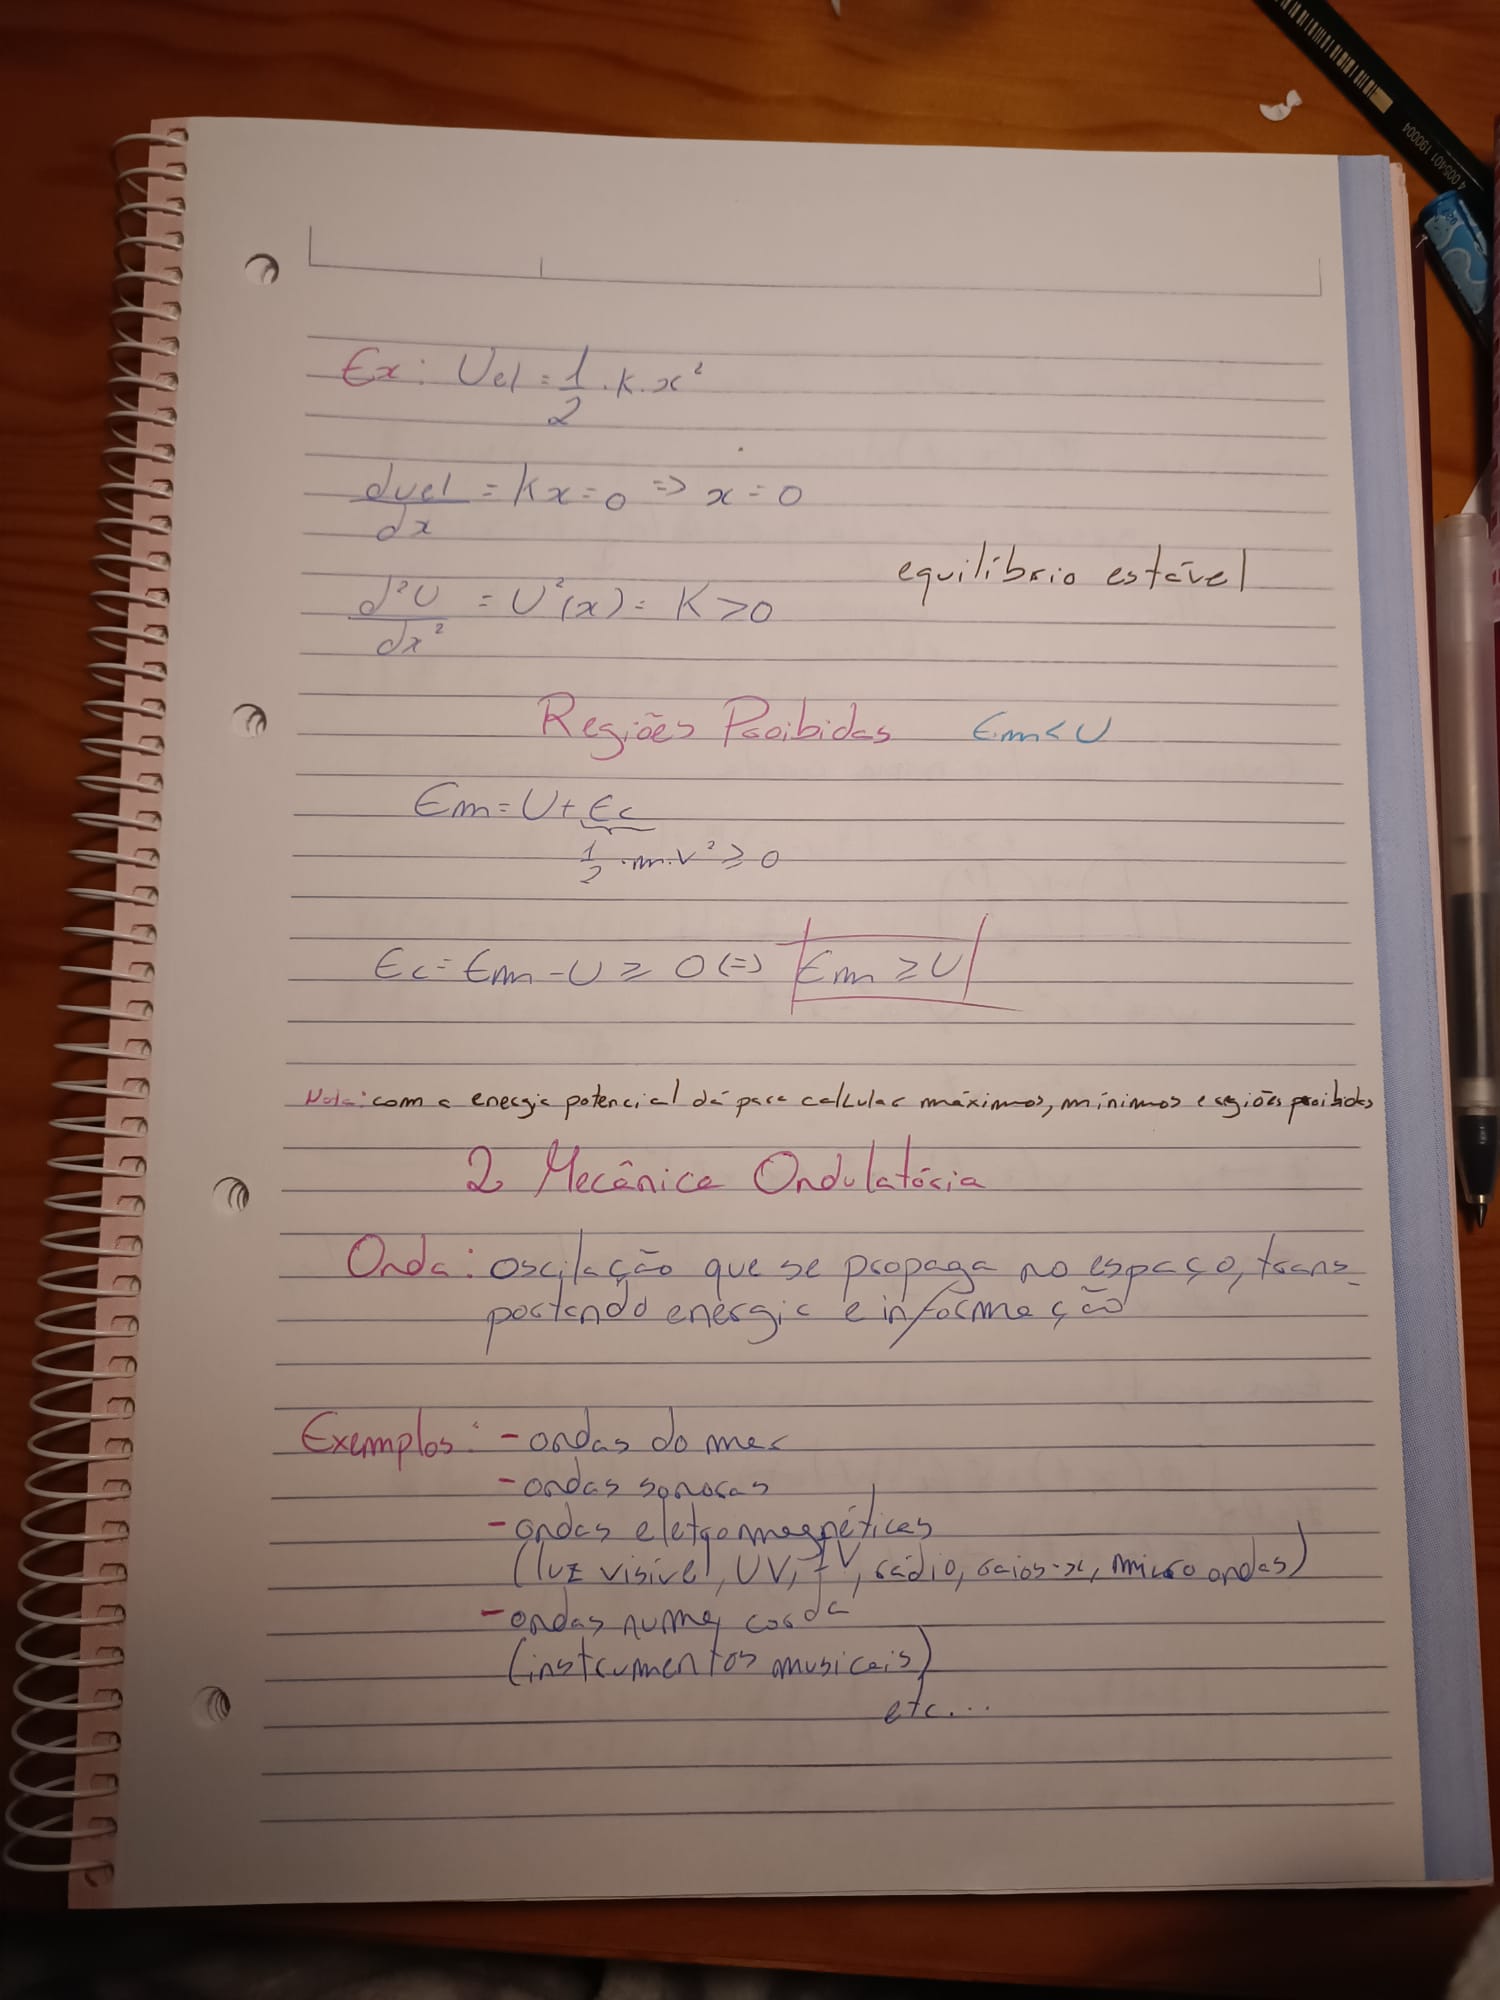 Ex: Uel = 1/2 . K . x²
duel/dx = Kx = 0 => x = 0
equilíbrio estável
d²U/dx² = U²(x) = K > 0
Regiões Proibidas Em < U
Em = U + Ec
1/2 . m . v² ≥ 0
Ec = Em - U ≥ 0 (=) Em ≥ U
Nota: com a energia potencial dá para calcular máximos, mínimos e regiões proibidas
2 Mecânica Ondulatória
Onda: oscilação que se propaga no espaço, trans-
portando energia e informação
Exemplos: - ondas do mar
- ondas sonoras
- ondas eletromagnéticas
(luz visível, UV, IV, rádio, raios-x, micro ondas)
- ondas numa corda
(instrumentos musicais)
etc...
4 005401 190004